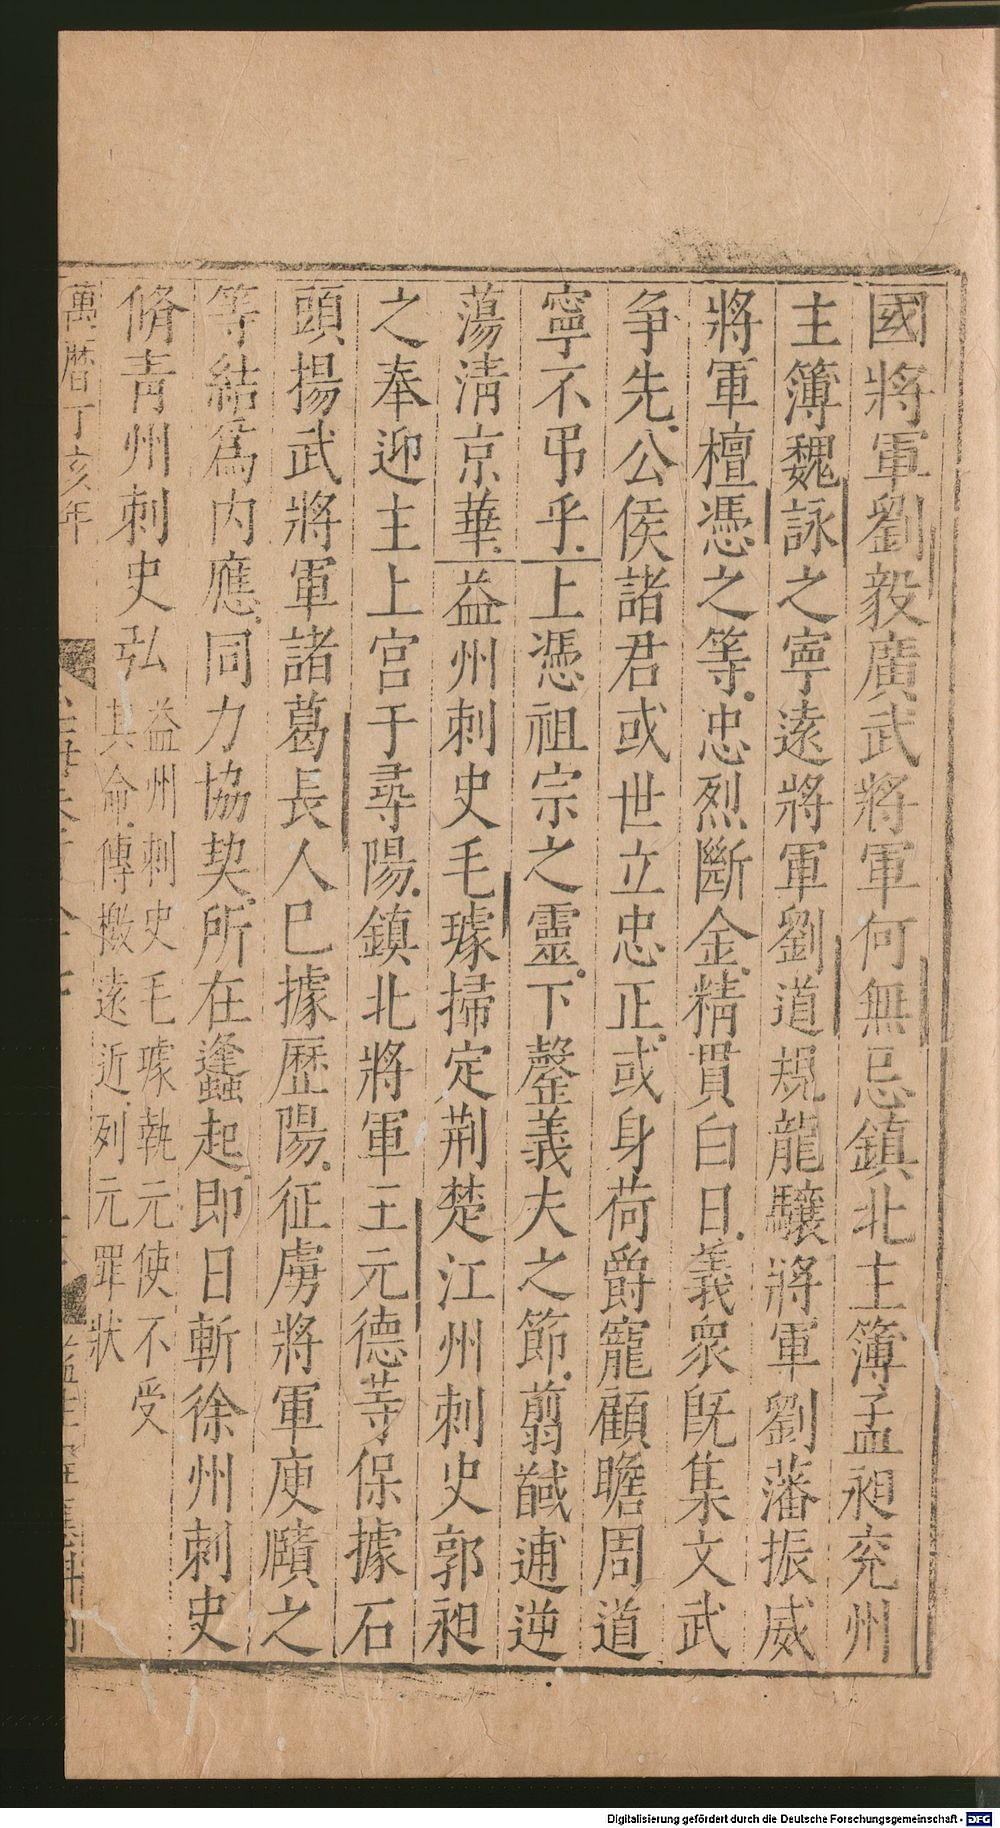 國將軍劉毅廣武將軍何無忌鎮北主簿孟昶兖州
主簿魏詠之寧遠將軍劉道規龍驤將軍劉藩振威
將軍檀憑之等忠烈斷金精貫白日義衆旣集文武
争先公侯諸君或世立忠正或身荷爵寵顧瞻周道
寧不弔乎上憑祖宗之靈下罄義夫之節翦馘逋逆
蕩淸京華益州刺史毛璩掃定荆楚江州刺史郭昶
之奉迎主上宫于尋陽鎮北將軍王元德等保據石
頭揚武將軍諸葛長人巳據歷陽征虜將軍庾賾之
等結爲内應同力協契所在蠭起即日斬徐州刺史
脩青州刺史弘
益州刺史毛璩執元使不受
其命傳檄遠近列元罪狀
萬曆丁亥年
Digitalisierung gefördert durch die Deutsche Forschungsgemeinschaft - DFG